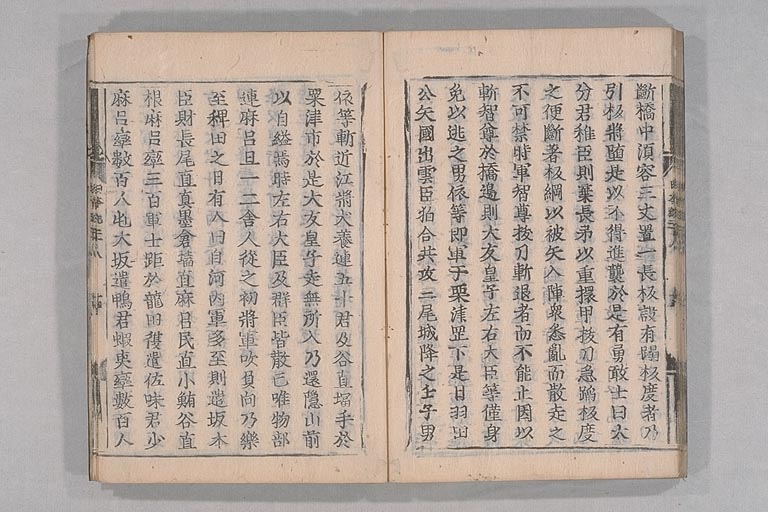 斷橋中須容三丈置一長板設有蹋板度者乃
引板將墮是以不得進襲於是有勇敢士曰大
分君稚臣則棄長矛以重擐甲拔刀急蹈板度
之便斷著板綱以被矢入陣衆悉亂而散走之
不可禁時軍智尊拔刀斬退者而不能止因以
斬智尊於橋邊則大友皇子左右大臣等僅身
免以逃之男依等即軍于粟津罡下是日羽田
公矢國出雲臣狛合共攻三尾城降之壬子男
依等斬近江將犬養連五十君及谷直塩手於
粟津市於是大友皇子走無所入乃還隱山前
以自縊焉時左右大臣及群臣皆散亡唯物部
連麻呂且一二舎人從之初將軍吹負向乃樂
至稗田之日有人曰自河内軍多至則遣坂本
臣財長尾直真墨倉墻直麻呂民直小鮪谷直
根麻呂率三百軍士距於龍田復遣佐味君少
麻呂率數百人屯大坂遣鴨君蝦夷率數百人